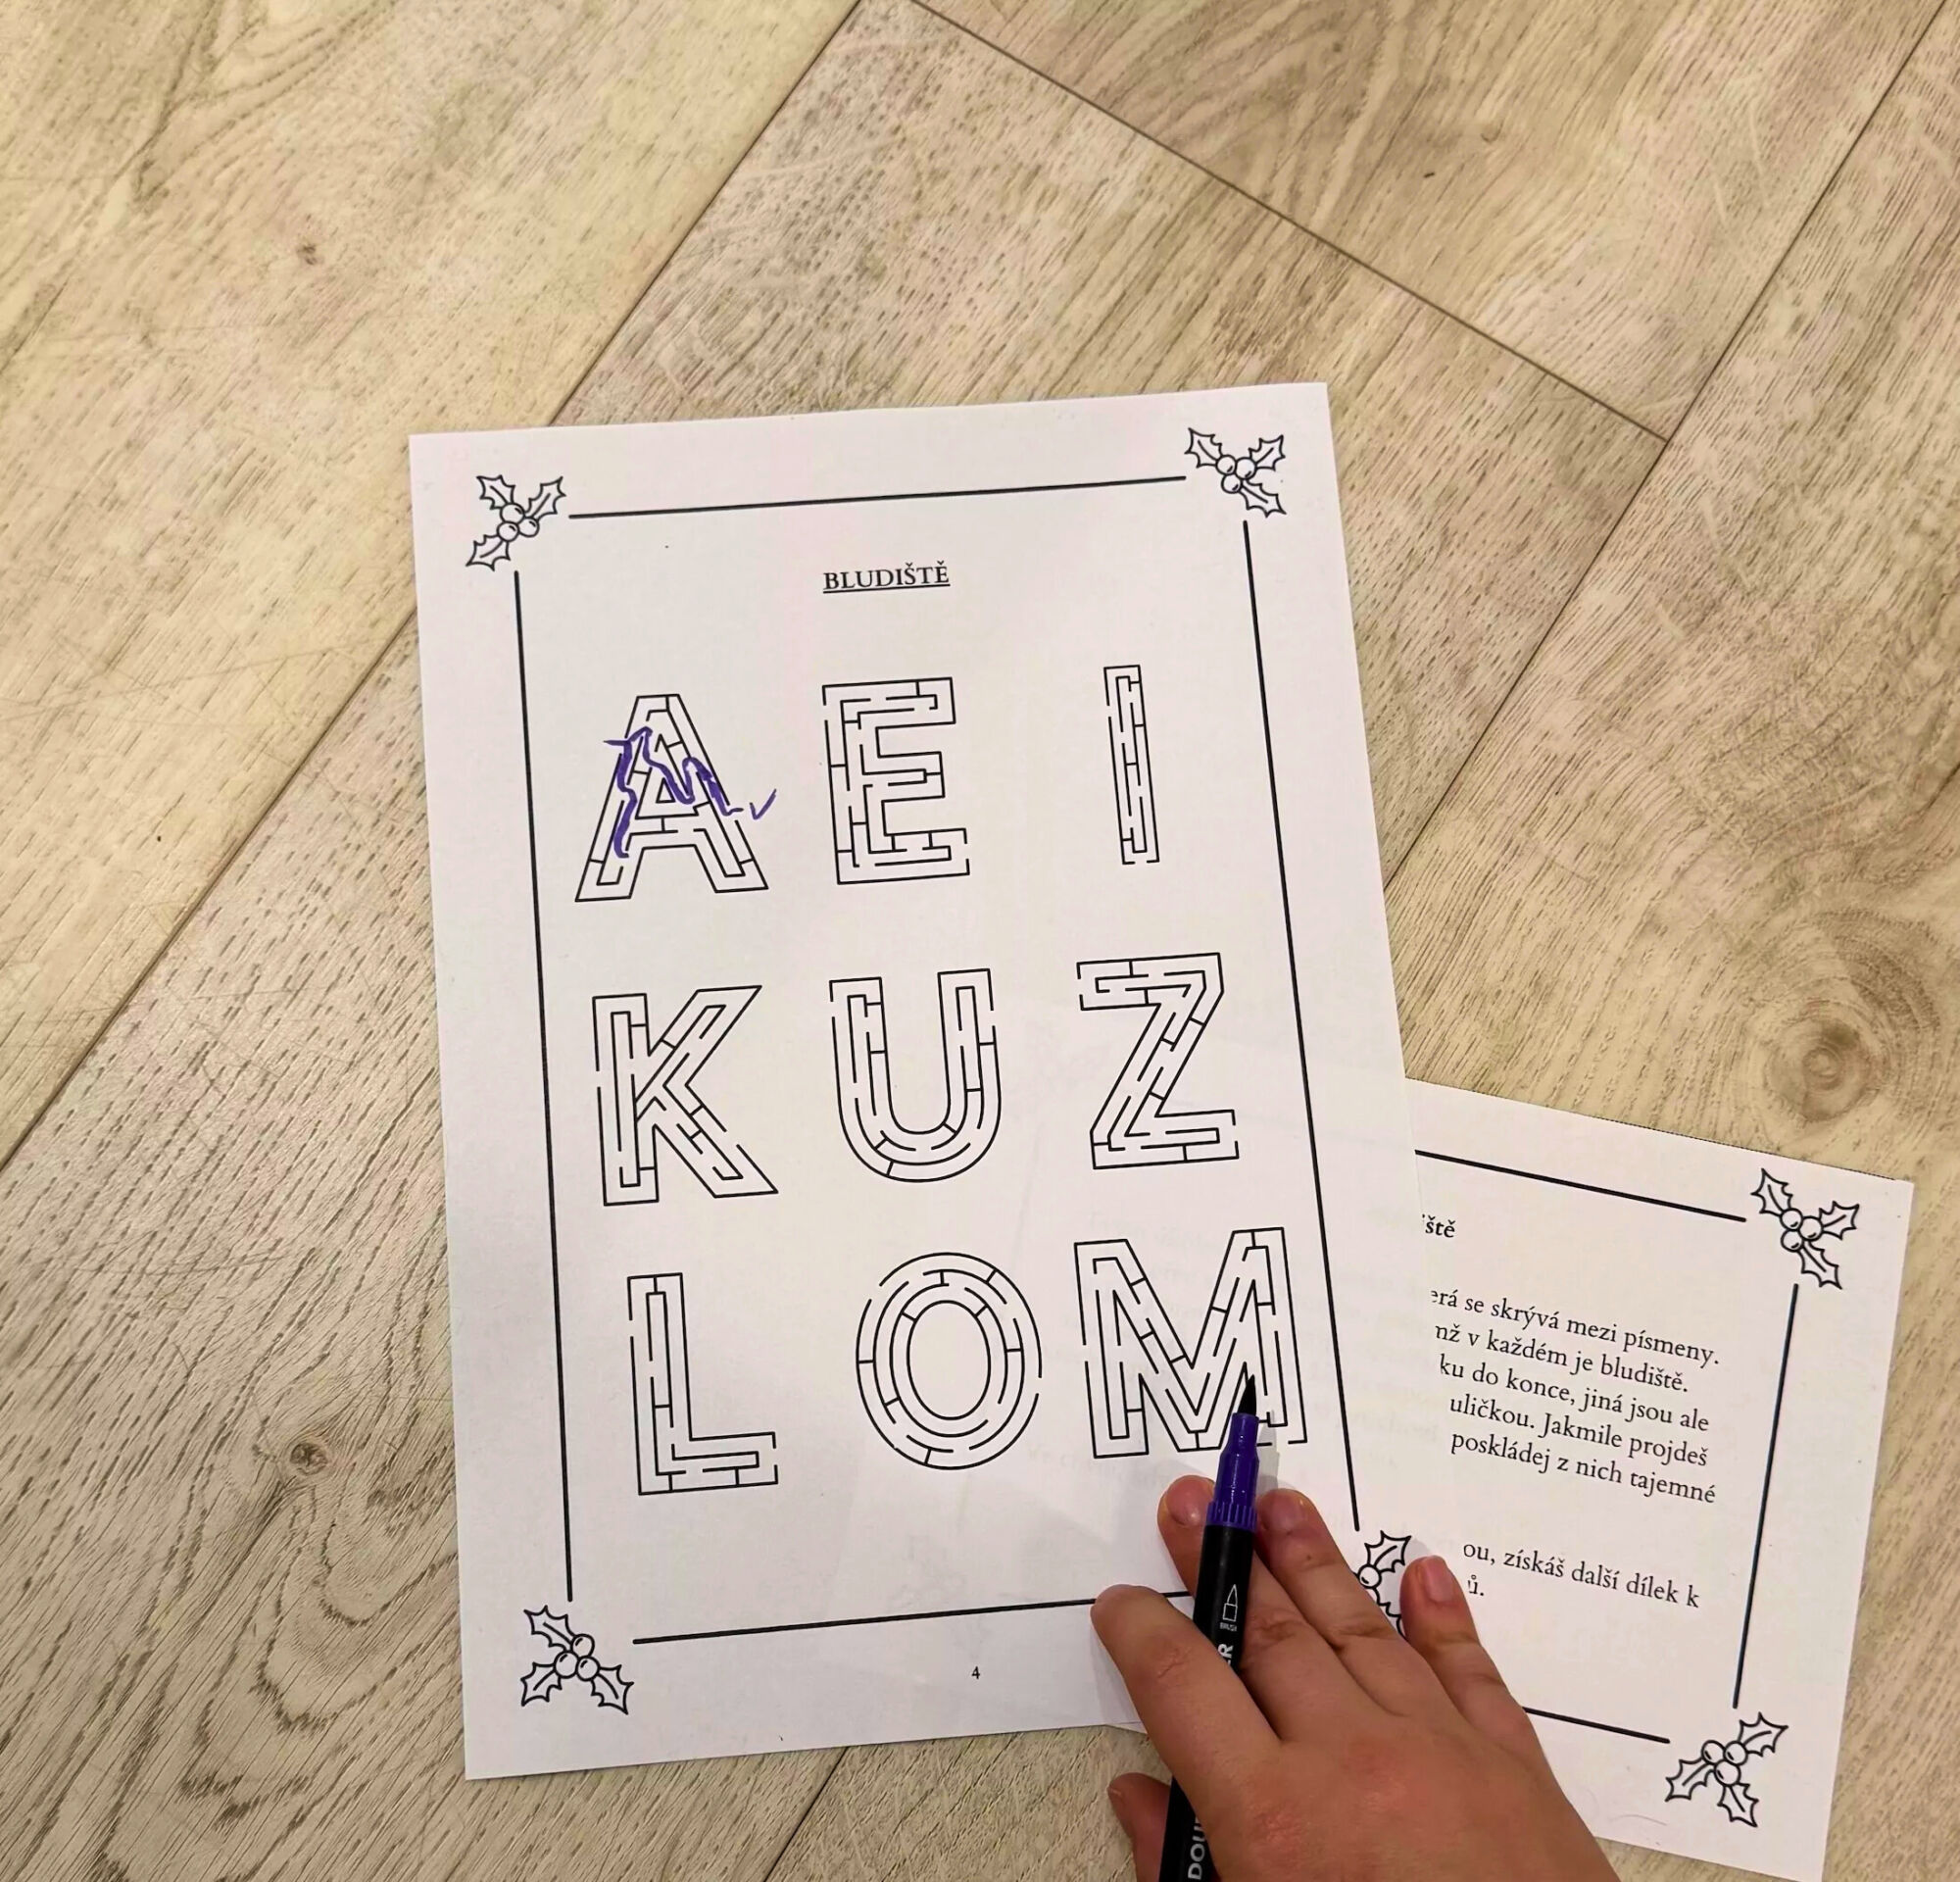 BLUDIŠTĚ
A E I
K U Z
L O M
4
iště
erá se skrývá mezi písmeny.
nž v každém je bludiště.
ku do konce, jiná jsou ale
uličkou. Jakmile projdeš
poskládej z nich tajemné
ou, získáš další dílek k
ů.
BRUSH
DOU ER